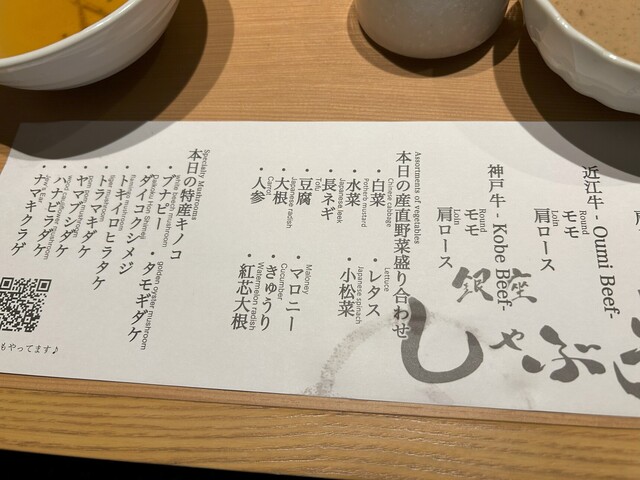 近江牛 - Oumi Beef-
モモ
Round
肩ロース
Loin
神戸牛 - Kobe Beef-
モモ
Round
肩ロース
Loin
銀座
しゃぶ
Assortments of vegetables
本日の産直野菜盛り合わせ
・白菜
Chinese cabbage
・レタス
Lettuce
・水菜
Potherb mustard
・小松菜
Japanese spinach
・長ネギ
Japanese leek
・豆腐
Tofu
・マロニー
Maloney
・大根
Japanese radish
・きゅうり
Cucumber
・人参
Carrot
・紅芯大根
Watermelon radish
Specialty Mushrooms
本日の特産キノコ
・ブナピー
white beech mushroom
・タモギダケ
golden oyster mushroom
・ダイコクシメジ
・トキイロヒラタケ
・トラマキダケ
・ヤマブシダケ
・ハナビラダケ
・ナマキクラゲ
もやってます♪